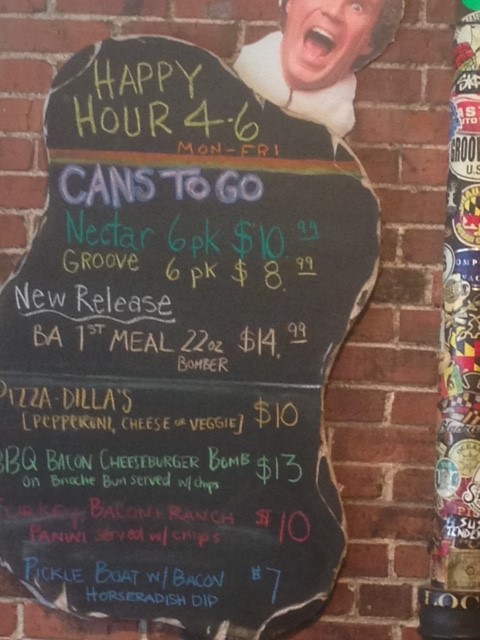 HAPPY
HOUR 4-6
MON-FRI
CANS TO GO
Nectar 6pk $10.99
GROOVE 6 pk $8.99
New Release
BA 1ST MEAL 22oz $14.99
BOMBER
PIZZA-DILLA'S
[PEPPERONI, CHEESE OR VEGGIE] $10
BBQ BACON CHEESEBURGER BOMB $13
on Brioche Bun served w/chips
TURKEY BACON + RANCH $10
PANINI served w/ chips
PICKLE BOAT W/ BACON $7
HORSERADISH DIP
GROOVE
U.S